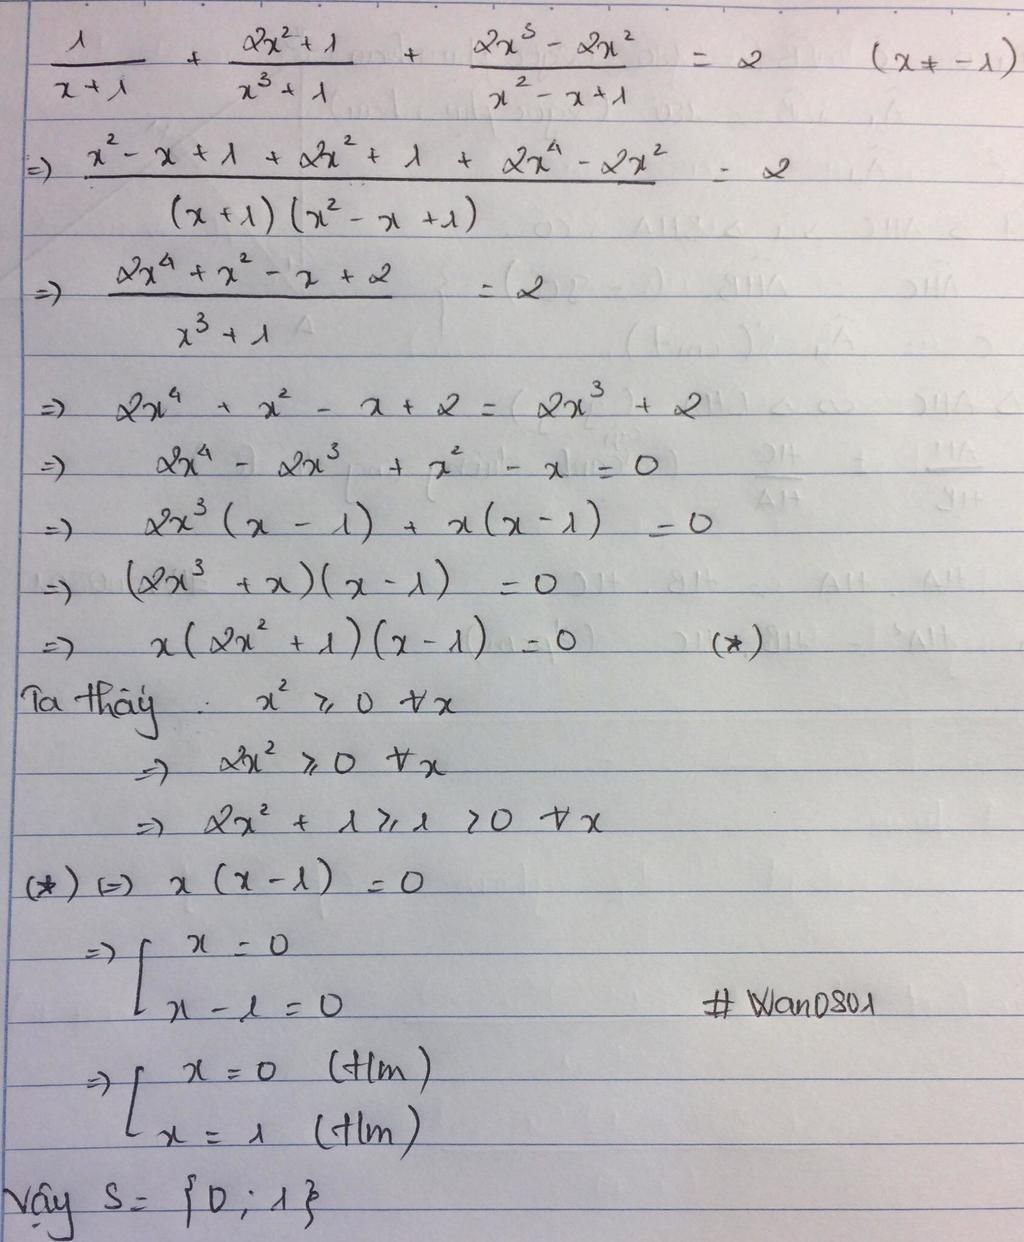 1/(x+1) + (2x²+1)/(x³+1) + (2x³ - 2x²)/(x² - x + 1) = 2 (x ≠ -1)
=> (x² - x + 1 + 2x² + 1 + 2x⁴ - 2x²)/((x+1)(x² - x + 1)) = 2
=> (2x⁴ + x² - x + 2)/(x³ + 1) = 2
=> 2x⁴ + x² - x + 2 = 2x³ + 2
=> 2x⁴ - 2x³ + x² - x = 0
=> 2x³(x - 1) + x(x - 1) = 0
=> (2x³ + x)(x - 1) = 0
=> x(2x² + 1)(x - 1) = 0 (*)
Ta thấy x² ⩾ 0 ∀x
=> 2x² ⩾ 0 ∀x
=> 2x² + 1 ⩾ 1 > 0 ∀x
(*) (=) x(x - 1) = 0
=> [ x = 0
x - 1 = 0
# Wan0801
=> [ x = 0 (t/m)
x = 1 (t/m)
Vậy S = {0; 1}